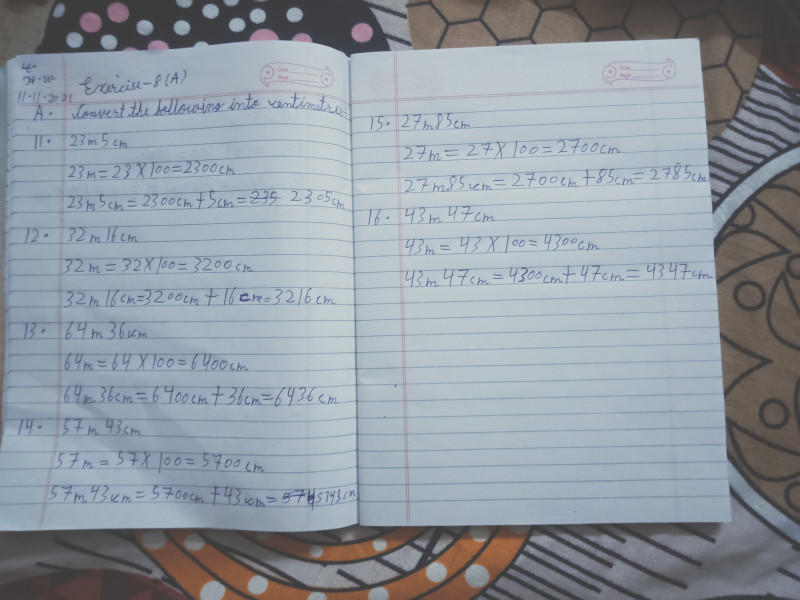 11-11-2021
Exercise-8(A)
A. Convert the following into centimetres
11. 23m5cm
23m = 23 X 100 = 2300cm
23m5cm = 2300cm + 5cm = 235 2305cm
12. 32m16cm
32m = 32 X 100 = 3200cm
32m16cm = 3200cm + 16cm = 3216cm
13. 64m36cm
64m = 64 X 100 = 6400cm
64m36cm = 6400cm + 36cm = 6436cm
14. 57m43cm
57m = 57 X 100 = 5700cm
57m43cm = 5700cm + 43cm = 5743cm
15. 27m85cm
27m = 27 X 100 = 2700cm
27m85cm = 2700cm + 85cm = 2785cm
16. 43m47cm
43m = 43 X 100 = 4300cm
43m47cm = 4300cm + 47cm = 4347cm